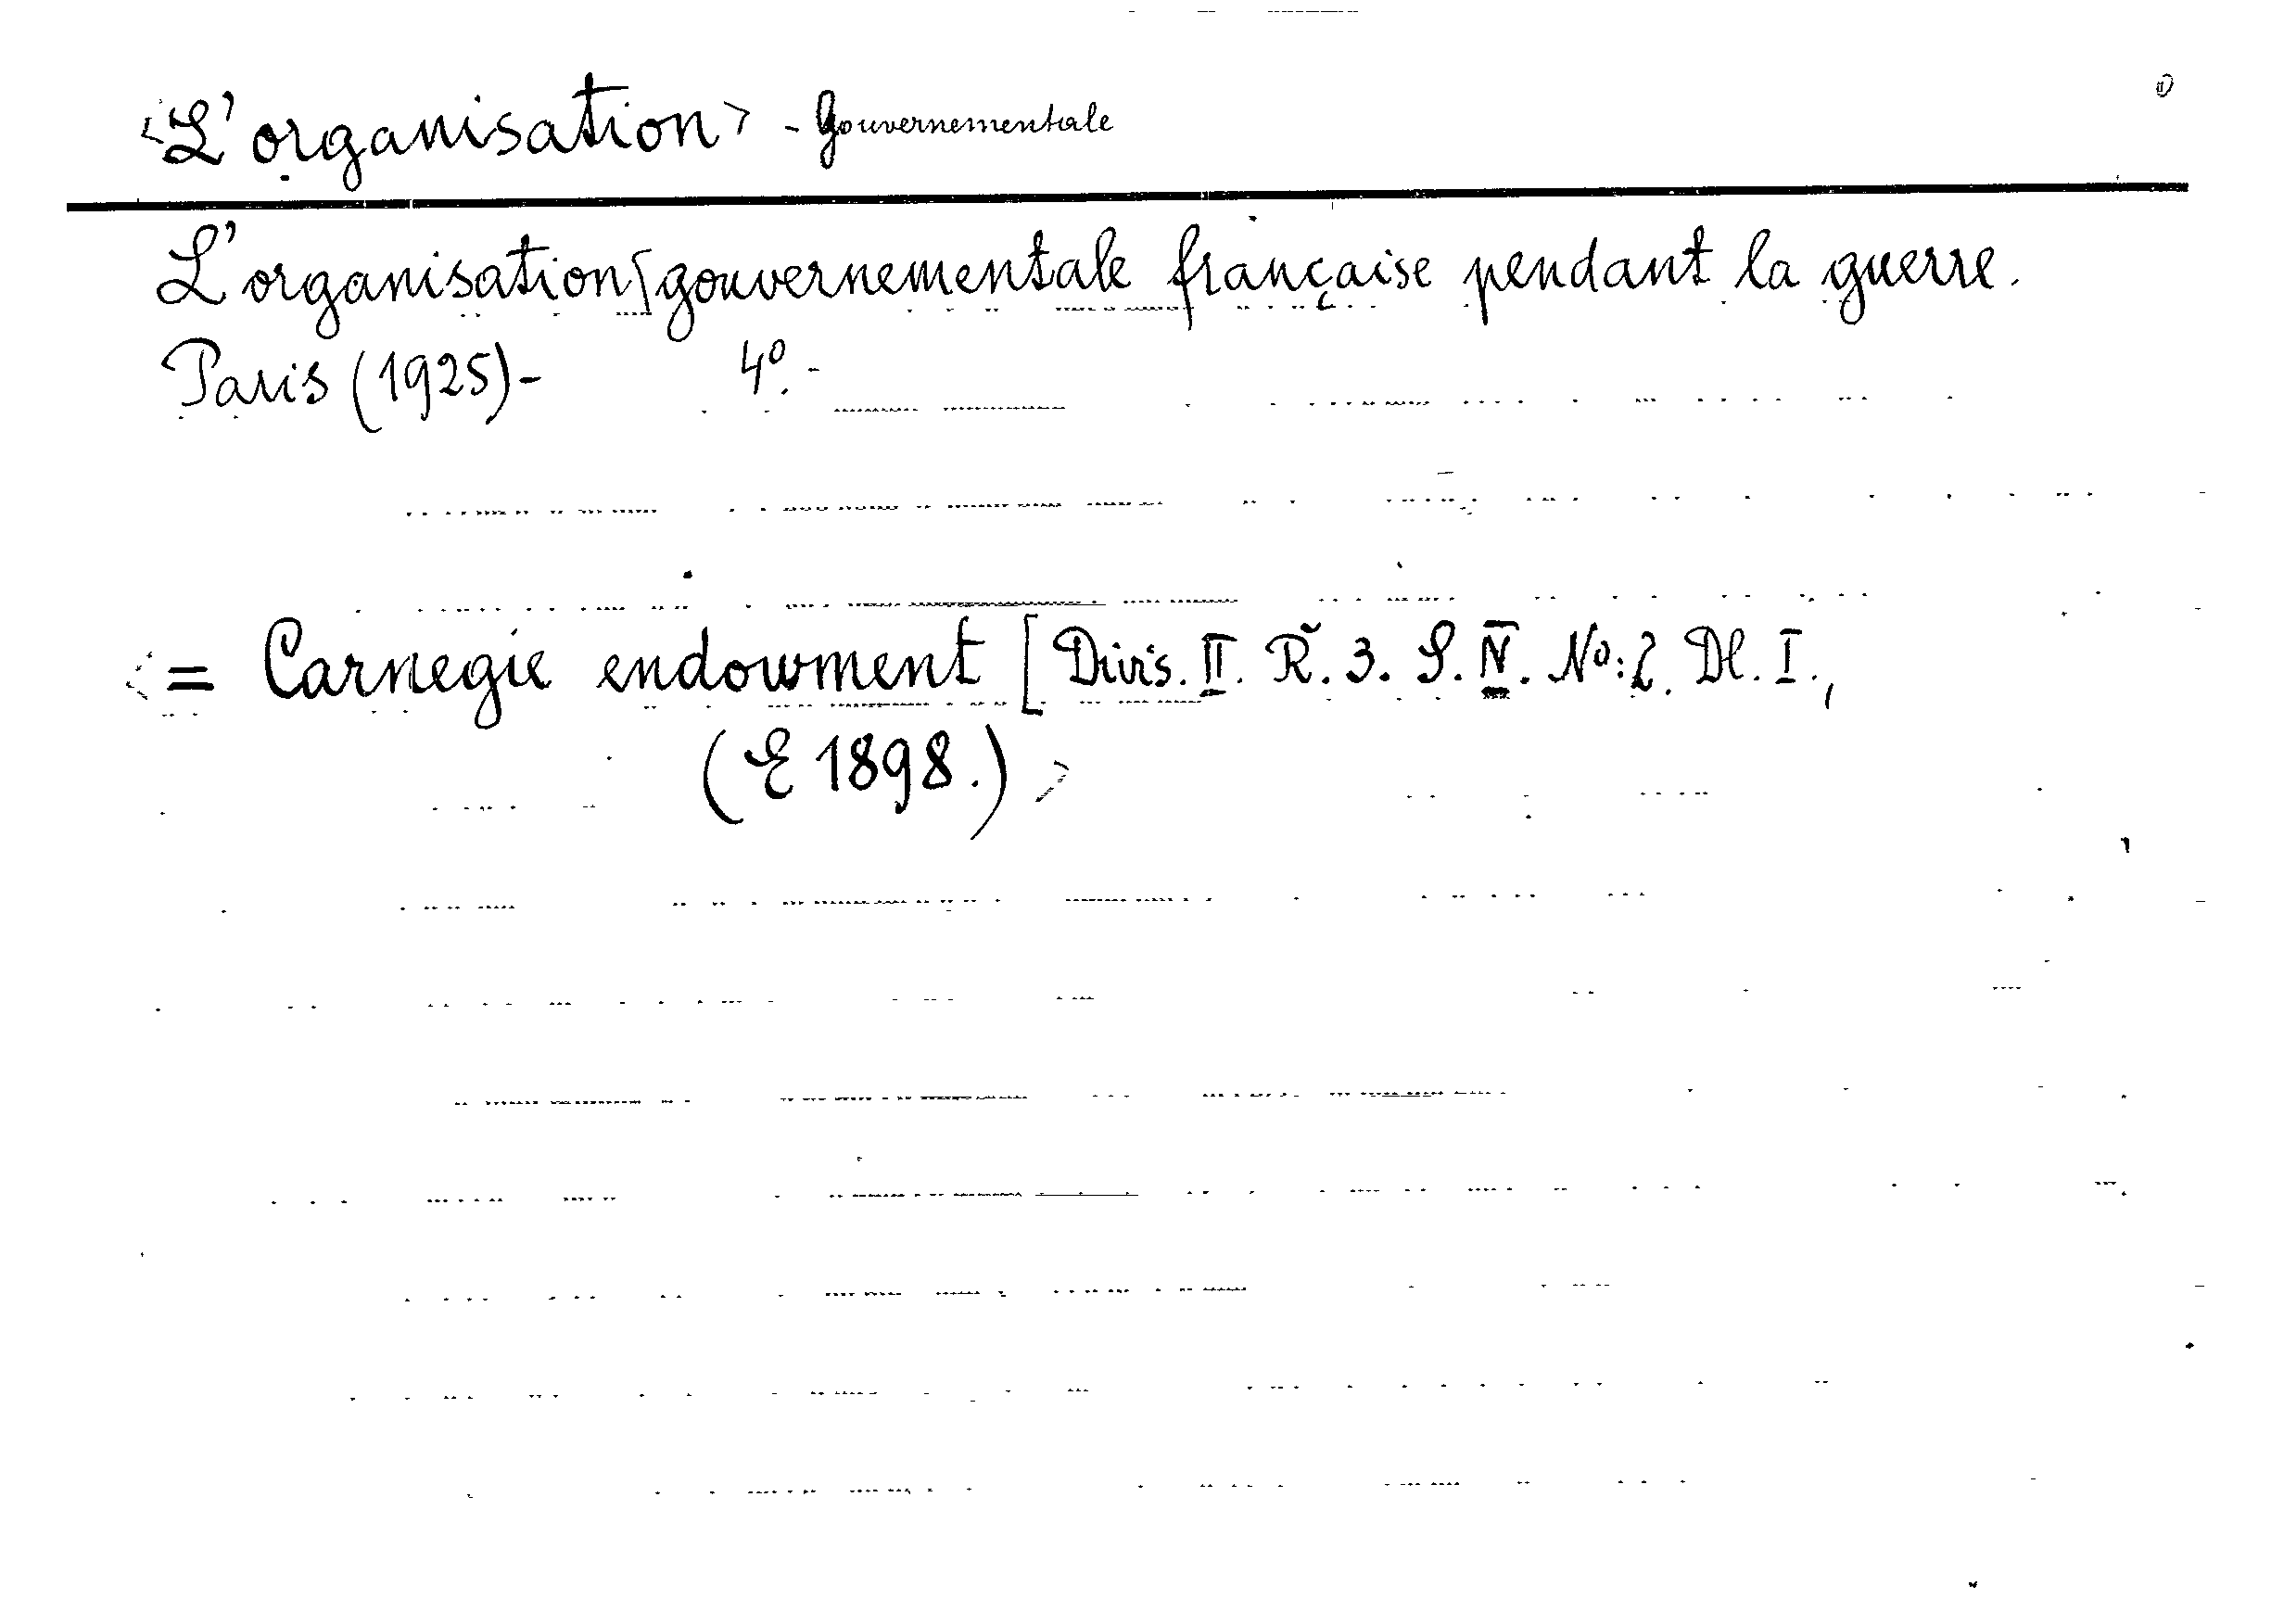 <L'organisation> - Gouvernementale
L'organisation gouvernementale française pendant la guerre.
Paris (1925)- 4º.-
<= Carnegie endowment [Divis. II. R. 3. S. IV. No: 2. Dl. I.,
(E 1898.)>